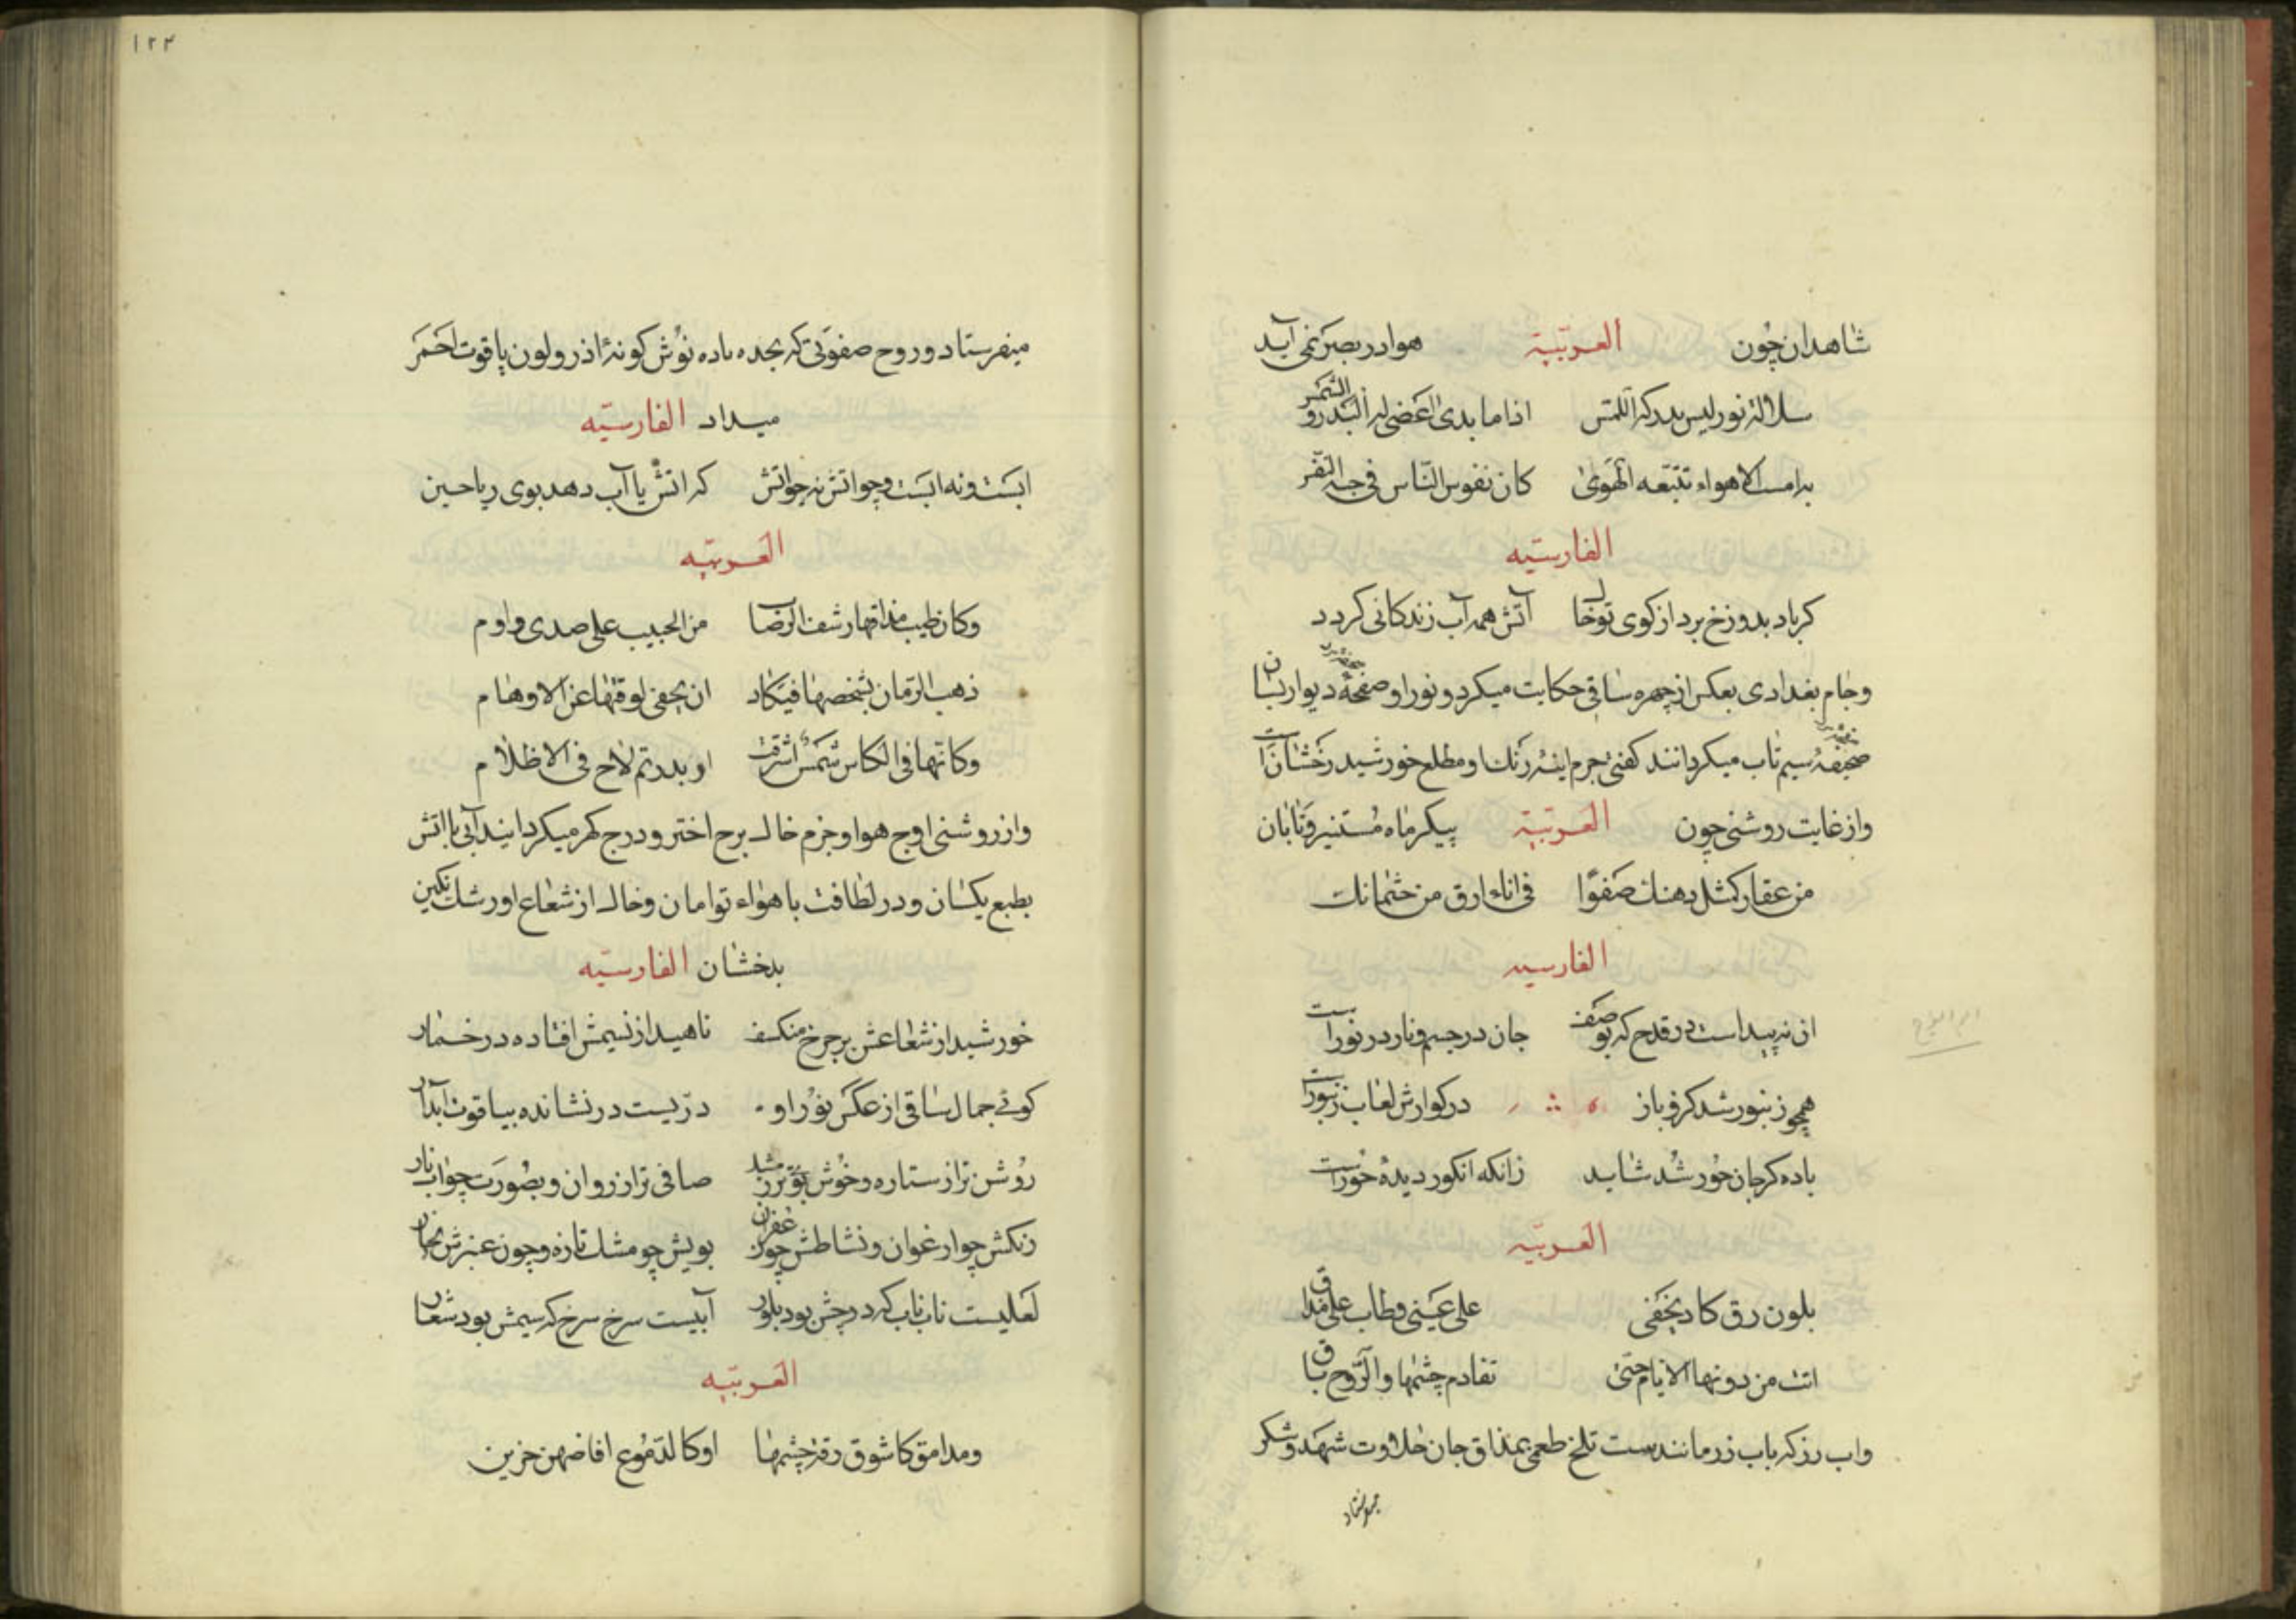 شاهدان چون العربیّة هوا در بصر نمی آید
سلالة نور لیس یدرکه اللمس اذا ما بدی اغضی له البدر و الشمس
به امست الاهواء تتبّعه الهوی کان نفوس النّاس فی حبّه
الفارسیّه
کر باد بدوزخ برد از کوی تو خاک آتش همه آب زندکانی کردد
و جام بغدادی بعکس از چهره ساقی حکایت میکرد و نور او صفحهٔ دیوار بسان
صحیفهٔ سیم ناب میکردانند کفتی جرم اینهٔ رنک او مطلع خورشید رخشان است
و از غایت روشنی چون العربیّة پیکر ماه مستنیر و تابان
من عقار کمثل دهنک صفوًا فی اناء ارق من
الفارسیه
ان نه پیداست در قدح که بوصف جان در جسم و نار در نور است
همچو زنبور شد کرو باز در کوارش لعاب زنبور است
باده کر جان خور شد شاید زانکه انکور دیدهٔ خور است
العربیّه
بلون رق کاد یخفی علی عینی و طاب علی مذاق
اتت من دونها الایام حتی تفادم جثمها و الرّوح باق
و اب رز که باب زر مانندست تلخ طعمی بمذاق جان حلاوت شهد و شکر
میفرستاد
۱۲۲
میفرستاد و روح صفوتی که بجده باده نوش کونهٔ اذر و لون یاقوت احمر
میداد الفارسیّه
ابست و نه ابست و چو اتش نه چو اتش که اتش یا آب دهد بوی ریاحین
العربیّه
و کان طیب مذاقها رشف الرضاب من الحبیب علی صدی و اوام
ذهب الزمان بشخصها فیکاد ان یخفی لرقتها عن الاوهام
و کانّها فی الکاس شمس اشرقت او بدر تم لاح فی الاظلام
و از روشنی اوج هوا و جزم خاک برج اختر و درج کهر میکردایند آبی با اتش
بطبع یکسان و در لطافت با هواء توامان و خاک از شعاع او رشک نکین
بدخشان الفارسیّه
خورشید از شعاعش بر چرخ منکسف ناهید از نسیمش افتاده در خمار
کوئی جمال ساقی از عکس نور او دریست در نشانده بیاقوت آبدار
روشن تر از ستاره و خوش بوتر ز مشک صافی تر از روان و بصورت چو اب نار
رنکش چو ارغوان و نشاطش چو زعفران بویش چو مشک تازه و چون عنبرش بخار
لعلیست ناب ناب که درجش بود بلور آبیست سرخ سرخ که سیمش بود شعار
العربیّه
و مدامة کا شوق رقة جثمها او کالدّموع افاضهن حزین